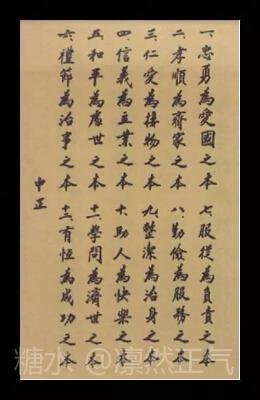 一、忠勇為愛國之本
二、孝順為齊家之本
三、仁愛為接物之本
四、信義為立業之本
五、和平為處世之本
六、禮節為治事之本
七、服從為負責之本
八、勤儉為服務之本
九、整潔為治身之本
十、助人為快樂之本
十一、學問為濟世之本
十二、有恆為成功之本
中正
糖水 @凛然正气